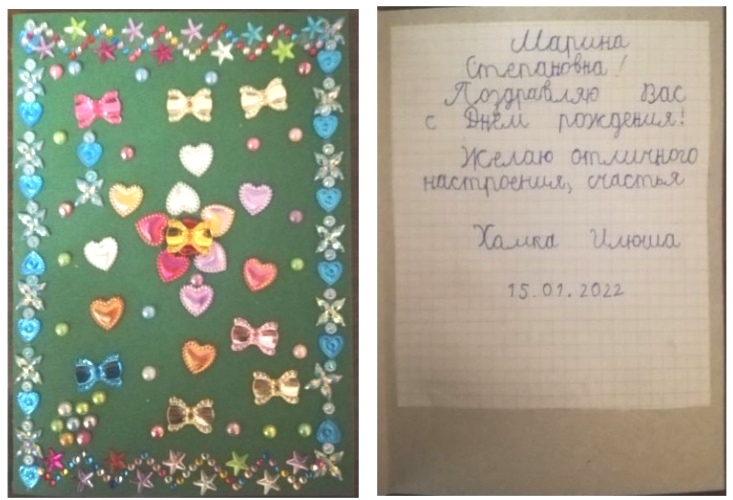 Марина
Степановна!
Поздравляю Вас
с Днём рождения!
Желаю отличного
настроения, счастья
Хамка Илюша
15.01.2022